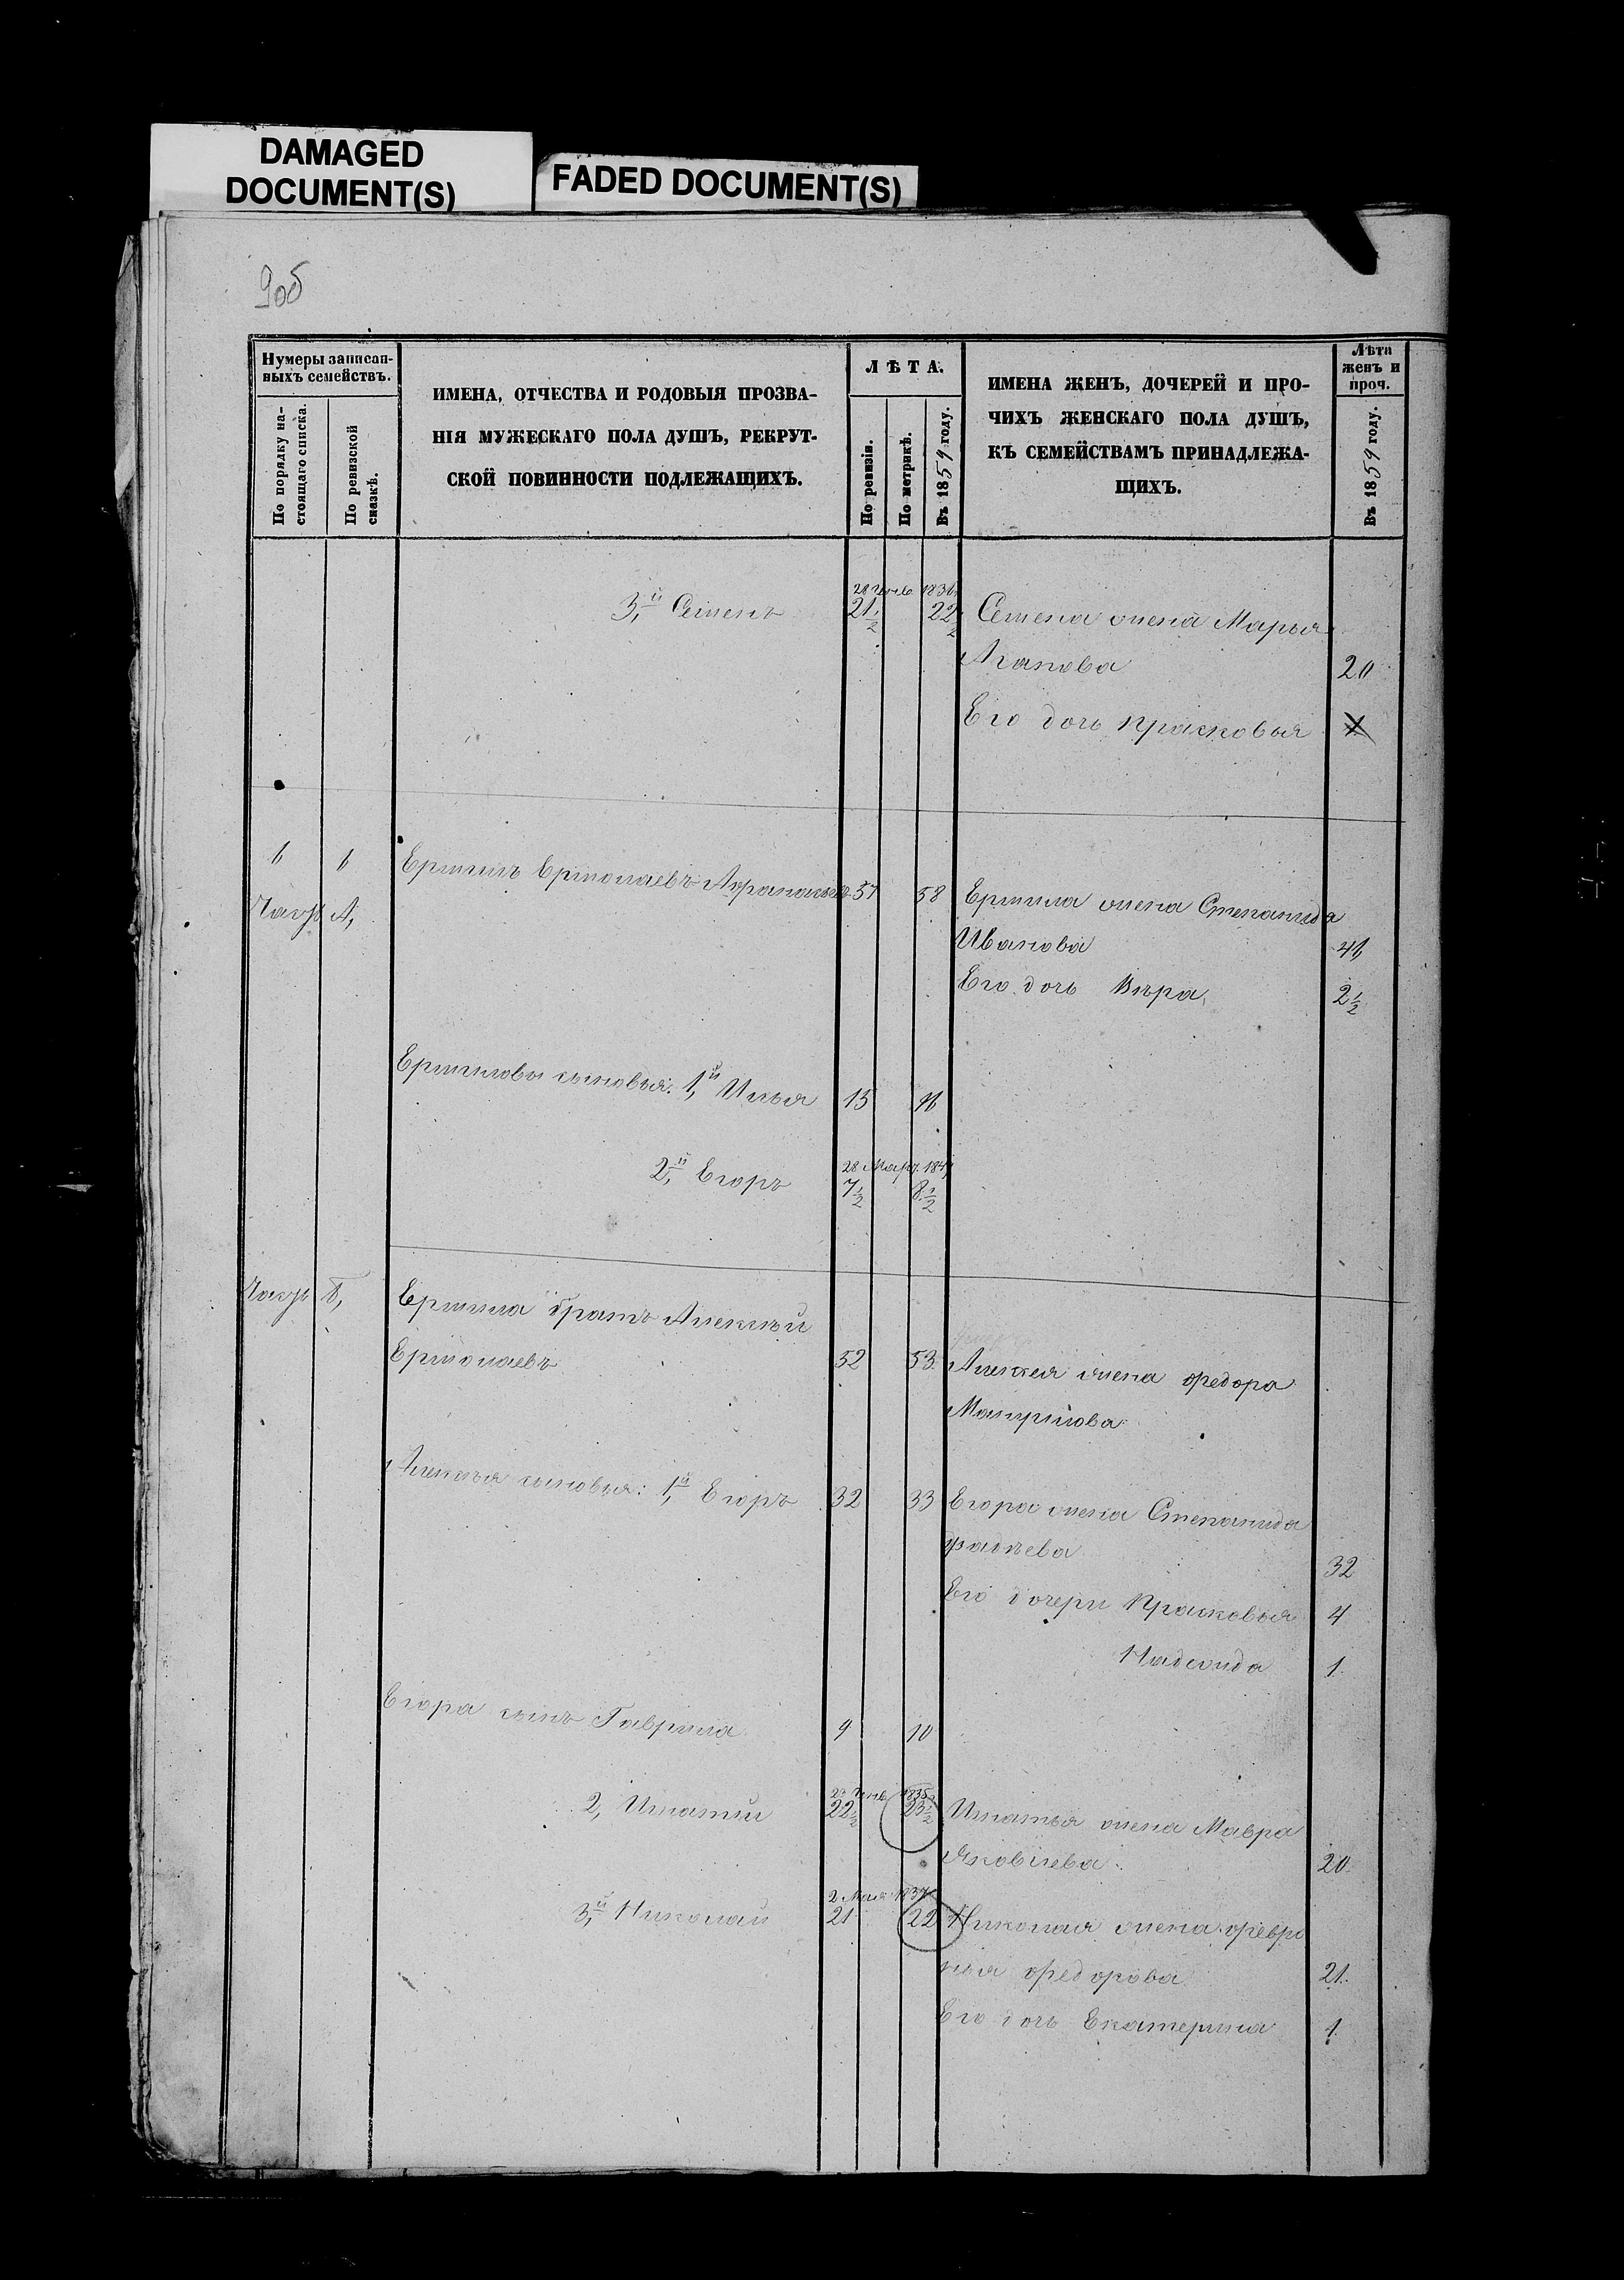 DAMAGED
DOCUMENT(S)
FADED DOCUMENT(S)
9об
Нумеры записан-
ныхъ семействъ.
По порядку на-
стоящаго списка.
По ревизской
сказкѣ.
ИМЕНА, ОТЧЕСТВА И РОДОВЫЯ ПРОЗВА-
НІЯ МУЖЕСКАГО ПОЛА ДУШЪ, РЕКРУТ-
СКОЙ ПОВИННОСТИ ПОДЛЕЖАЩИХЪ.
ЛѢТА.
По ревизіи.
По метрикѣ.
Въ 1859 году.
ИМЕНА ЖЕНЪ, ДОЧЕРЕЙ И ПРО-
ЧИХЪ ЖЕНСКАГО ПОЛА ДУШЪ,
КЪ СЕМЕЙСТВАМЪ ПРИНАДЛЕЖА-
ЩИХЪ.
Лѣта
женъ и
проч.
Въ 1859 году.
28 Генв 1836
3,й Семенъ 21 1/2 22 1/2 Семена жена Марья
Агапова 20
Его дочь Прасковья
6 6 Ермилъ Ермолаевъ 57 58 Ермила жена Степанида
Часть А, Иванова 41
Его дочь Вѣра 2 1/2
Ермиловы сыновья: 1,й Илья 15 16
28 Мар.
2,й Егоръ 7 1/2 8 1/2
Часть Б, Ермила братъ Алексѣй
Ермолаевъ 52 53 Алексея жена Федора
Алексѣя сыновья: 1,й Егоръ 32 33 Егора жена Степанида
Фадѣева 32
Его дочери Прасковья 4
Надежда 1
Егора сынъ Гаврила 9 10
Генв. 1835
2, Игнатій 22 1/2 23 1/2 Игнатья жена Мавра
Яковлева 20
2 Мая 1837
3,й Николай 21 22 Николая жена Февро
нья Федорова 21
Его дочь Екатерина 1